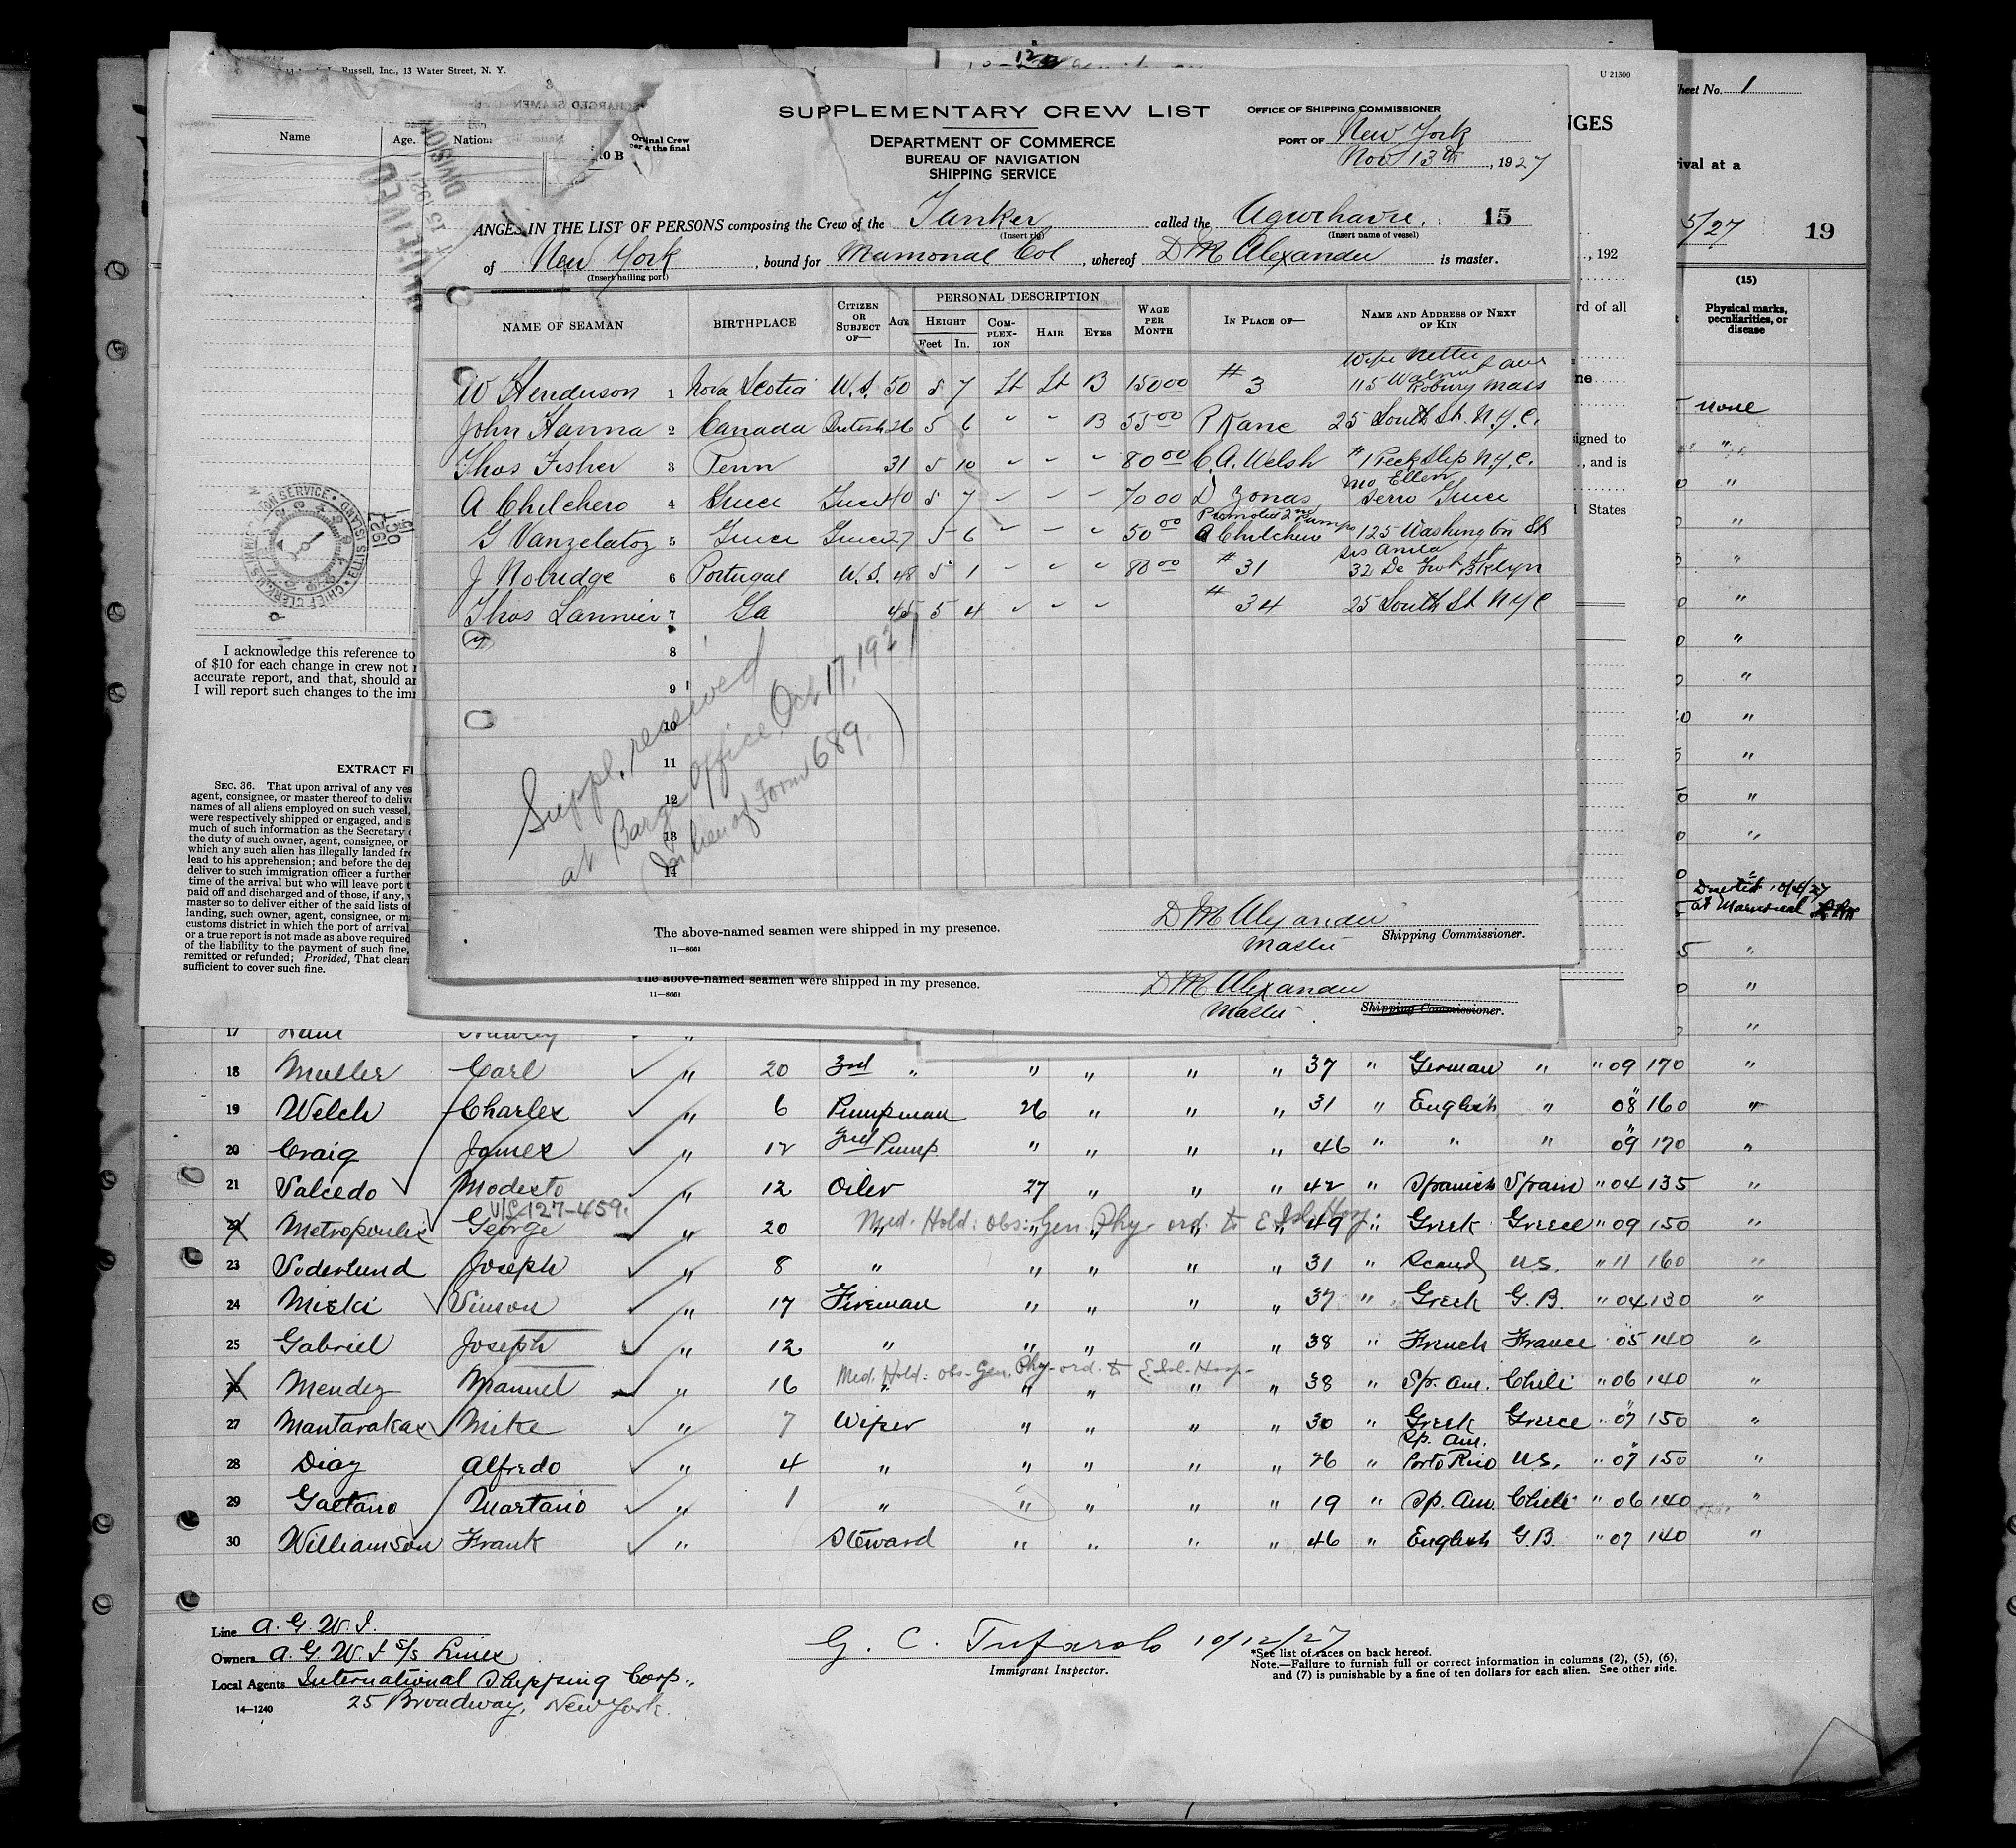 Russell, Inc., 13 Water Street, N. Y.
U 21300
Sheet No. 1
SUPPLEMENTARY CREW LIST
OFFICE OF SHIPPING COMMISSIONER
DEPARTMENT OF COMMERCE
PORT OF New York
BUREAU OF NAVIGATION
Nov 13th, 1927
SHIPPING SERVICE
Name Age. Nation
NGES
ival at a
ANGES IN THE LIST OF PERSONS composing the Crew of the Tanker called the Agwihavre. 15
(Insert rig) (Insert name of vessel)
5/27 19
of New York, bound for Mamonal Col, whereof D M Alexander is master.
(Insert hailing port)
, 192
NAME OF SEAMAN BIRTHPLACE CITIZEN OR SUBJECT OF— AGE PERSONAL DESCRIPTION WAGE PER MONTH IN PLACE OF— NAME AND ADDRESS OF NEXT OF KIN
HEIGHT COMPLEXION HAIR EYES
Feet In.
(15)
Physical marks, peculiarities, or disease
rd of all
Wife Nettie
W Henderson 1 Nova Scotia U.S. 50 5 7 Lt Lt B 150 00 # 3 115 Walnut Ave Roxbury Mass
John Hanna 2 Canada British 26 5 6 " " B 55 00 P Kane 25 South St. N.Y.C.
none
Thos Fisher 3 Penn 31 5 10 " " " 80 00 C.A. Welsh #1 Peck Slip N.Y.C.
signed to
, and is
Mo Ellen
A Chilchero 4 Greece Greece 40 5 7 " " " 70 00 D Zonas Serro Greece
States
Promoted 2nd Pumps
G Vanzelatoz 5 Greece Greece 27 5 6 " " " 50 00 A Chilchero 125 Washington St
Sis Anita
J Nobridge 6 Portugal U.S. 48 5 1 " " " 80 00 # 31 32 De Graw St Bklyn
Thos Lannier 7 Ga 45 5 4 " " " # 34 25 South St NYC
8
9
10
11
12
13
14
Suppl. received
at Barge Office, Oct 17, 1927
(In lieu of Form 689.)
CHIEF CLERK U.S. IMMIGRATION SERVICE ELLIS ISLAND
OCT 15 1927
I acknowledge this reference to
of $10 for each change in crew not
accurate report, and that, should
I will report such changes to the
EXTRACT
SEC. 36. That upon arrival of any
agent, consignee, or master thereof to
names of all aliens employed on such vessel,
were respectively shipped or engaged, and
much of such information as the Secretary
the duty of such owner, agent, consignee, or
which any such alien has illegally landed
lead to his apprehension; and before the
deliver to such immigration officer a further
time of the arrival but who will leave port
paid off and discharged and of those, if any,
master so to deliver either of the said lists
landing, such owner, agent, consignee, or
customs district in which the port of arrival
or a true report is not made as above required
of the liability to the payment of such fine,
remitted or refunded; Provided, That
sufficient to cover such fine.
Deserted
at Mamonal
D M Alexander
The above-named seamen were shipped in my presence. Master Shipping Commissioner.
11—8661
The above-named seamen were shipped in my presence. D M Alexander
11—8661 Master. Shipping Commissioner.
17
18 Muller Carl " 20 3rd " " " " " 37 " German " " 09 170 "
19 Welch Charles " 6 Pumpman 26 " " " 31 " English " " 08 160 "
20 Craig James " 12 2nd Pump " " " " 46 " " " " 09 170 "
21 Salcedo Modesto " 12 Oiler 27 " " " 42 " Spanish Spain " 04 135 "
127-459.
22 Metropoulis George " 20 " " " " " 49 " Greek Greece " 09 150 "
Med. Hold: obs: Gen. Phy- ord. to E. Isl. Hosp.
23 Soderlund Joseph " 8 " " " " " 31 " Scand U.S. " 11 160 "
24 Miski Simon " 17 Fireman " " " " 37 " Greek G.B. " 04 130 "
25 Gabriel Joseph " 12 " " " " " 38 " French France " 05 140 "
Med. Hold: obs- Gen. Phy- ord. to E. Isl. Hosp-
26 Mendez Manuel " 16 " " " " " 38 " Sp. Am. Chili " 06 140 "
27 Mantarakas Mike " 7 Wiper " " " " 30 " Greek Greece " 07 150 "
Sp. Am.
28 Diaz Alfredo " 4 " " " " " 26 " Porto Rico U.S. " 07 150 "
29 Gaetano Martario " 1 " " " " " 19 " Sp. Am. Chili " 06 140 "
30 Williamson Frank " Steward " " " " 46 " English G.B. " 07 140 "
Line A. G. W. I.
Owners A. G. W. I S/S Lines
G. C. Tufarolo 10/12/27
Immigrant Inspector.
*See list of races on back hereof.
Note.—Failure to furnish full or correct information in columns (2), (5), (6),
and (7) is punishable by a fine of ten dollars for each alien. See other side.
Local Agents International Shipping Corp.,
25 Broadway, New York.
14—1240